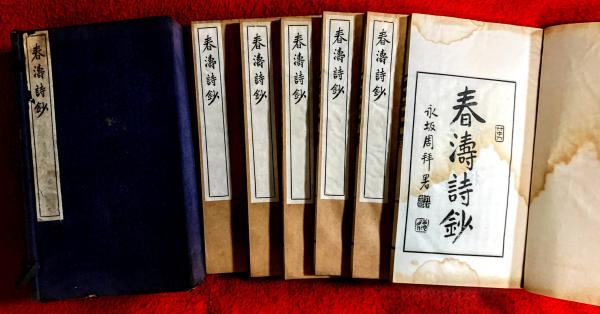 春濤詩鈔
春濤詩鈔
春濤詩鈔
春濤詩鈔
春濤詩鈔
春濤詩鈔
春濤詩鈔
永坂周祥署